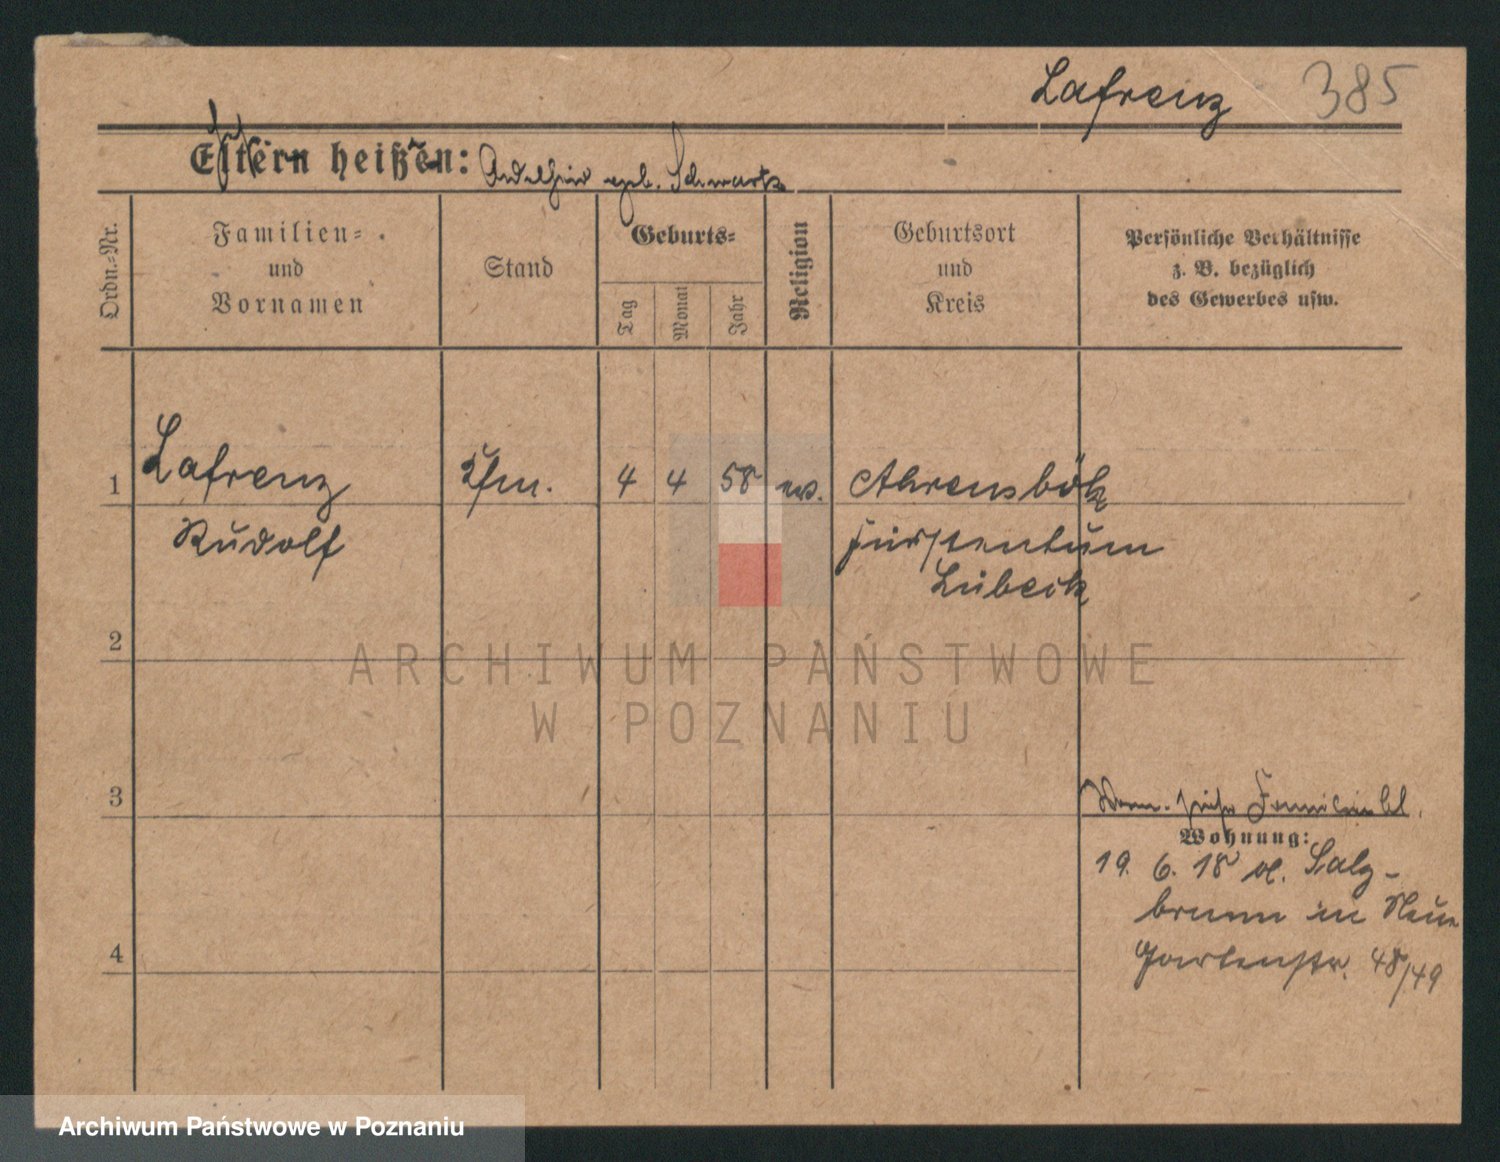 Lafrenz 385
Eltern heißen: geb. Schwartz
Ordn.-Nr.
Familien-
und
Vornamen
Stand
Geburts-
Tag
Monat
Jahr
Religion
Geburtsort
und
Kreis
Persönliche Verhältnisse
z. B. bezüglich
des Gewerbes usw.
1 Lafrenz Kfm. 4 4 58 ev. Ahrensbök
Rudolf Fürstentum
Lübeck
2
ARCHIWUM PAŃSTWOWE
W POZNANIU
3
Wohnung:
19. 6. 18 Salz-
brunn in Neue
4 Gartenstr. 48/49
Archiwum Państwowe w Poznaniu